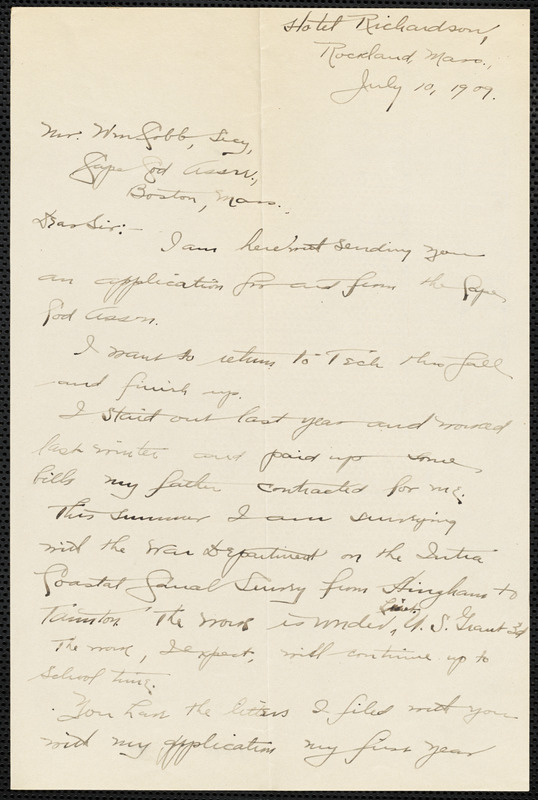 Hotel Richardson,
Rockland, Mass.,
July 10, 1909.
Mr. Wm Lobb, Secy,
Cape Cod Assn.,
Boston, Mass.,
Dear Sir:-
I am herewith sending you
an application for aid from the Cape
Cod Assn.
I want to return to Tech this fall
and finish up.
I staid out last year and worked
last winter and paid up some
bills my father contracted for me.
This summer I am surveying
with the War Department on the Intra
Coastal Canal Survey from Hingham to
Taunton. The work is under Lieut. U. S. Grant 3d
The work, I expect, will continue up to
school time.
You have the letters I filed with you
with my application my first year